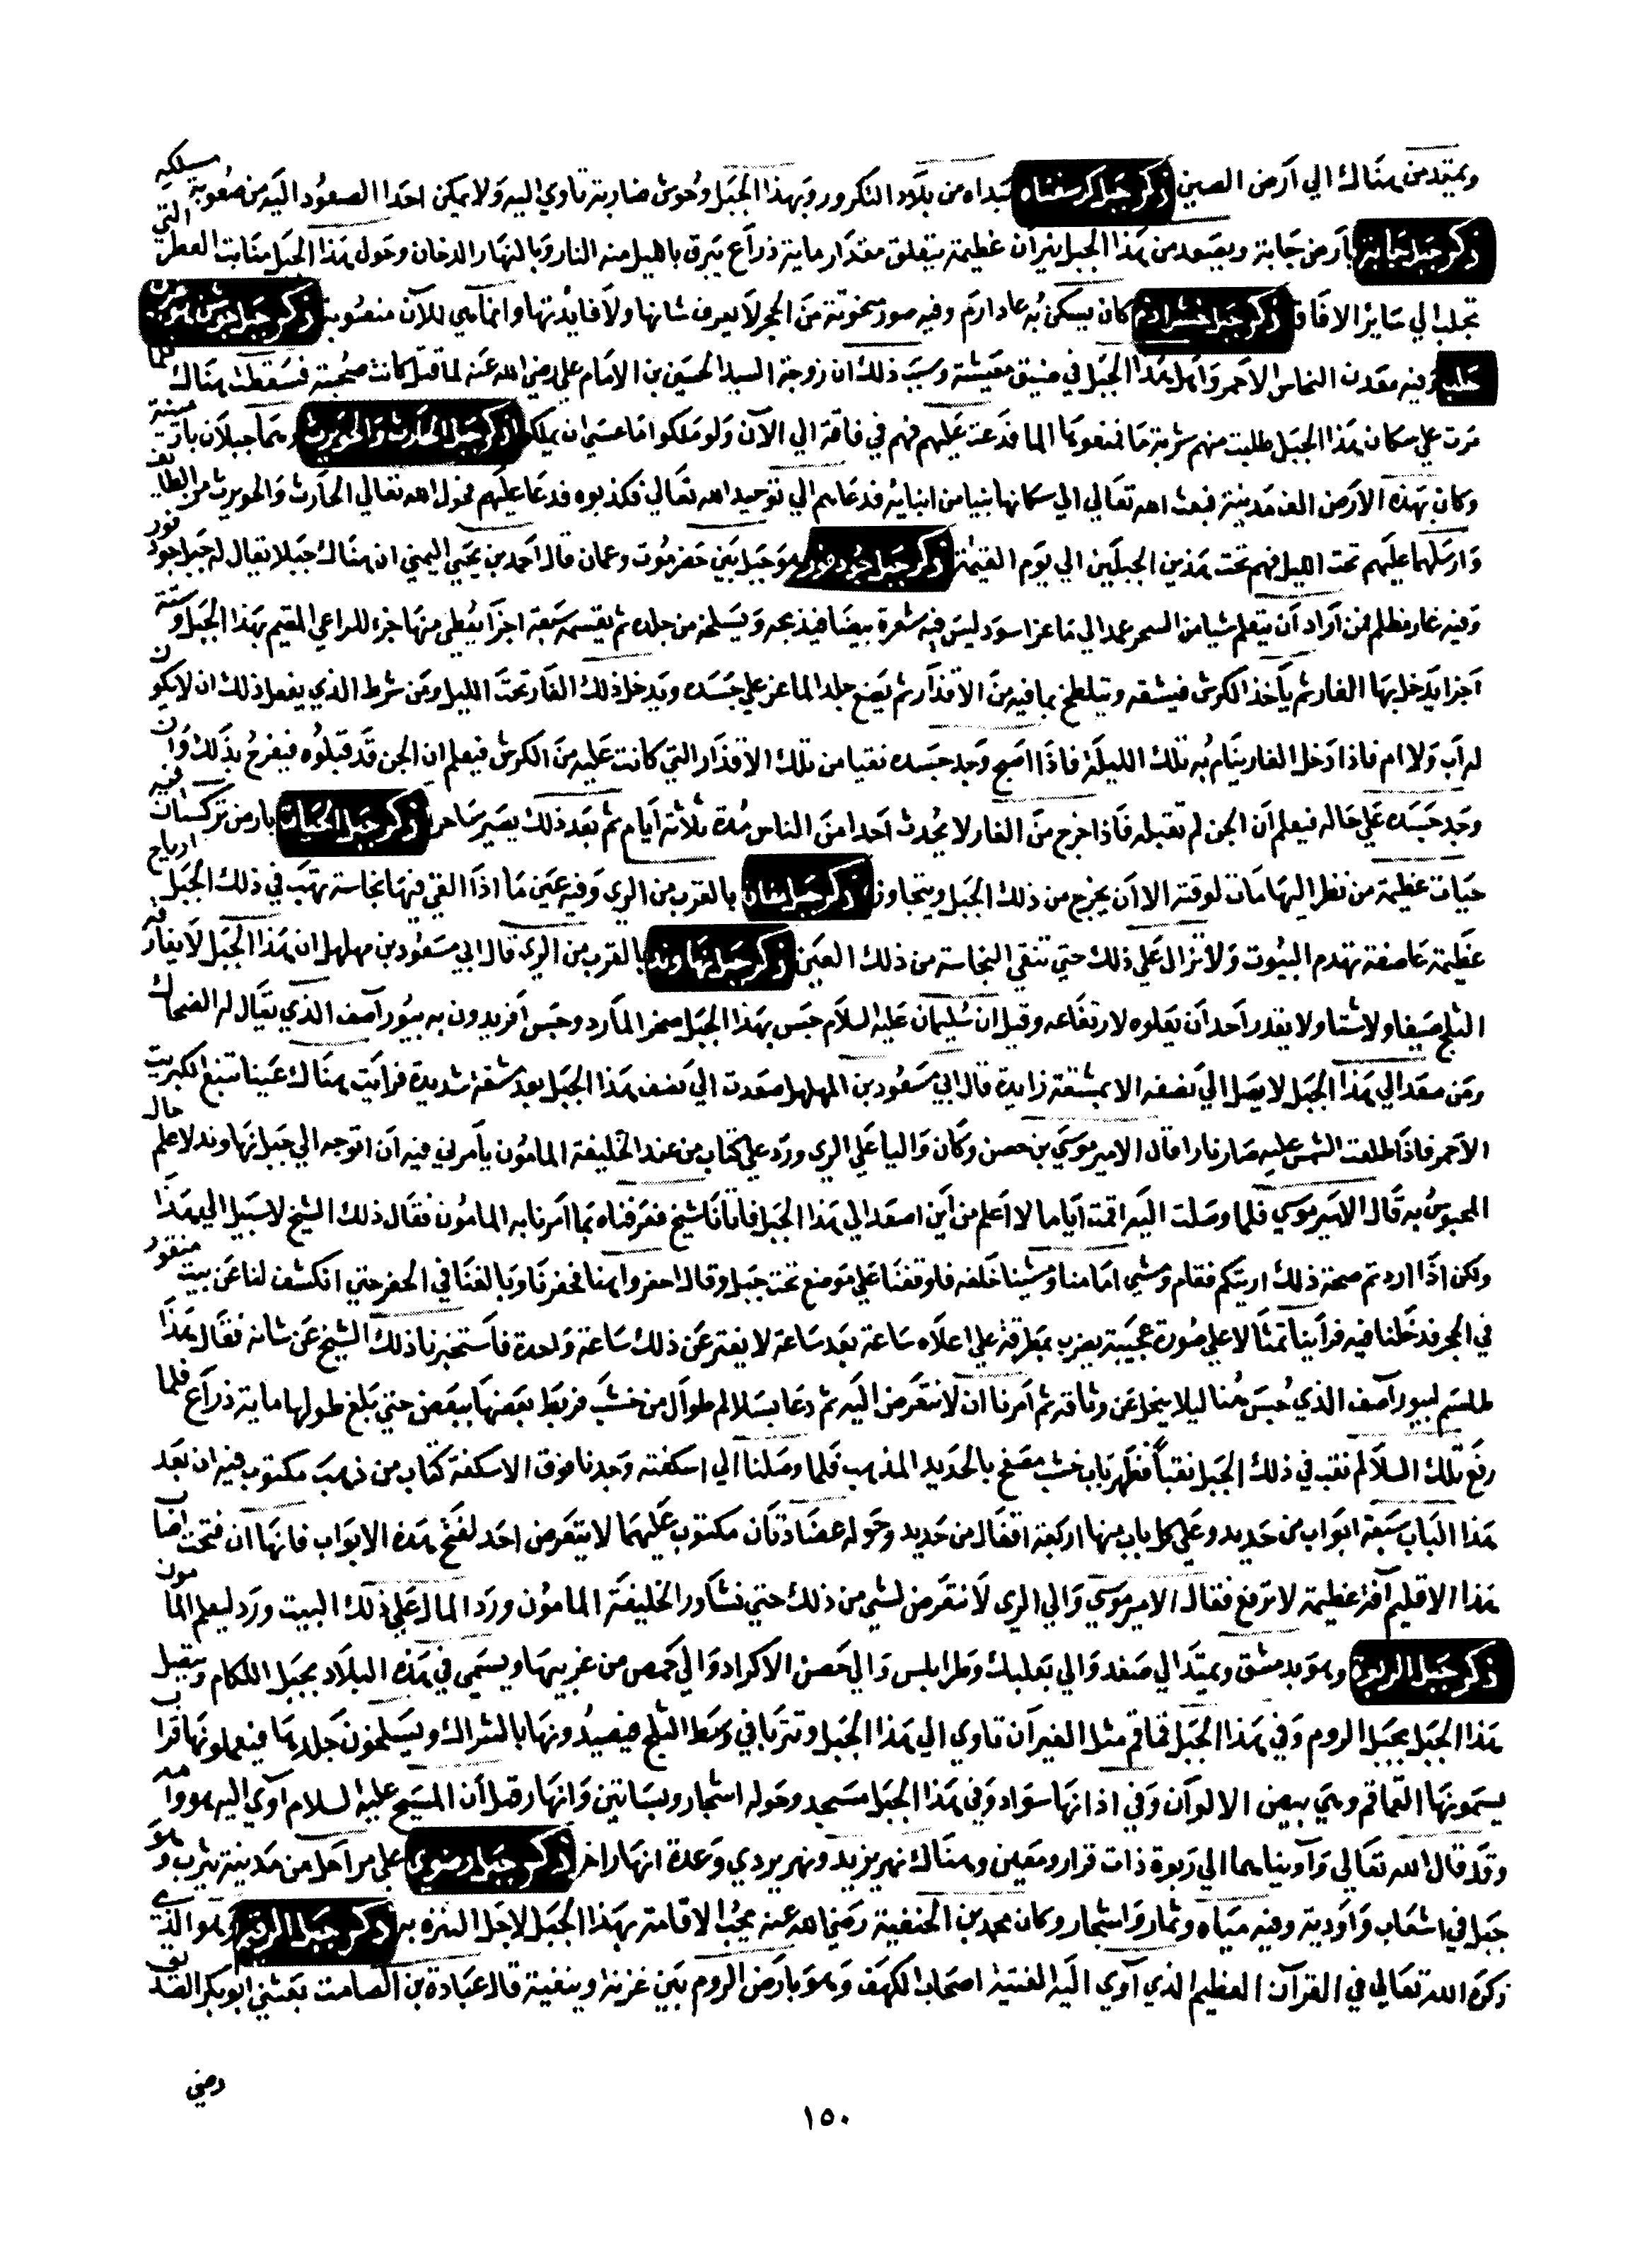 ويمتد من هناك الي ارض الصين ذكر جبل كرسفناه مبداه من بلاد التكرور وبهذا الجبل وحوش ضارية تاوي اليه ولا يمكن احدا الصعود اليه من صعوبة مسلكه
ذكر جبل جابة بارض جابة ويصعد من هذا الجبل نيران عظيمة يتعلق مقدار ماية ذراع يبرق بالليل منه النار وبالنهار الدخان وحول هذا الجبل منابت العطر التي
تجلب الي ساير الافاق ذكر جبل كان يسكن به عاد ارم وفيه صور منحوتة من الحجر لا يعرف شانها ولا فايدتها وانما هي للآن منصوبة ذكر جبل جوشن هو من
حلب وفيه معدن النحاس الاحمر واهل هذا الجبل في ضيق معيشة وسبب ذلك ان زوجة السيد الحسين بن الامام علي رضي الله عنه لما قتل كانت صحبته فسقطت هناك فلما
مرت علي سكان هذا الجبل طلبت منهم شربة ما فمنعوها الما فدعت عليهم فهم في فاقة الي الآن ولو ملكوا ما عسي ان يملكوا ذكر جبل الحارث والحويرث وهما جبلان بارمينية
وكان بهذه الارض الف مدينة فبعث الله تعالي الي سكانها نبيا من انبيائه فدعاهم الي توحيد الله تعالي فكذبوه فدعا عليهم فحول الله تعالي الحارث والحويرث من الطايف
وارسلهما عليهم تحت الليل فهم تحت هذين الجبلين الي يوم القيمة ذكر جبل جود قور هو جبل بين حضرموت وعمان قال احمد بن يحيي اليمني ان هناك جبلا يقال له جبل جود قور
وفيه غار مظلم فمن اراد ان يتعلم شيا من السحر عمد الي ماعز اسود ليس فيه شعرة بيضا فيذبحه ويسلخه من جلده ثم يقسمه سبعة اجزا يعطي منها جزء للراعي المقيم بهذا الجبل وستة
اجزا يدخل بها الغار ثم يأخذ الكرش فيشقه ويتلطخ بما فيه من الاقذار ثم يضع جلد الماعز علي جسده ويدخل ذلك الغار تحت الليل ومن شرط الذي يفعل ذلك ان لا يكون
له اب ولا ام فاذا دخل الغار ينام به تلك الليلة فاذا اصبح وجد جسده نقيا من تلك الاقذار التي كانت عليه من الكرش فيعلم ان الجن قد قبلوه فيفرح بذلك وان
وجد جسده علي حاله فيعلم ان الجن لم تقبله فاذا خرج من الغار لا يحدث احدا من الناس مدة ثلاثة ايام ثم بعد ذلك يصير ساحرا ذكر جبل الحيات بارض تركستان فيه
حيات عظيمة من نظر اليها مات لوقته الا ان يخرج من ذلك الجبل ويتجاوز ذكر جبل بالقرب من الري وفيه عين ما اذا القي فيها نجاسة تهب في ذلك الجبل ارياح
عظيمة عاصفة تهدم البيوت ولا تزال علي ذلك حتي تنقي النجاسة من ذلك العين ذكر جبل نهاوند بالقرب من الري قال ابي مسعود بن مهلهل ان هذا الجبل لا يفارقه
الثلج صيفا ولا شتا ولا يقدر احد ان يعلوه لارتفاعه وقيل ان سليمان عليه السلام حبس بهذا الجبل صخر المارد وحبس افريدون به بيورآصف الذي يقال له الضحاك
ومن صعد الي هذا الجبل لا يصل الي نصفه الا بمشقة زايدة قال ابي مسعود بن المهلهل صعدت الي نصف هذا الجبل بعد مشقة شديدة فرايت هناك عينا تنبع الكبريت
الاحمر فاذا طلعت الشمس عليه صار نارا قال الامير موسي بن حصن وكان واليا علي الري ورد علي كتاب من عند الخليفة المامون يأمرني فيه ان اتوجه الي جبل نهاوند لاعلم حال
المحبوس به قال الامير موسي فلما وصلت اليه اقمت اياما لا اعلم من اين اصعد الي هذا الجبل فاتانا شيخ فعرفناه بما امرنا به المامون فقال ذلك الشيخ لا سبيل الي هذا
ولكن اذا اردتم صحة ذلك اريتكم فقام ومشي امامنا ومشينا خلفه فاوقفنا علي موضع تحت جبل وقال احفروا هنا فحفرنا وبالغنا في الحفر حتي انكشف لنا عن بيت منقور
في الحجر فدخلنا فيه فرأينا تمثالا علي صورة عجيبة يضرب بمطرقة علي اعلاه ساعة بعد ساعة لا يفتر عن ذلك ساعة واحدة فاستخبرنا ذلك الشيخ عن شانه فقال هذا
طلسم لبيورآصف الذي حبس هنا ليلا ينحل عن وثاقه ثم امرنا ان لا نتعرض اليه ثم دعا بسلالم طوال من خشب فربط بعضها ببعض حتي بلغ طولها ماية ذراع فلما
رفع تلك السلالم نقب في ذلك الجبل نقبا فظهر باب خشب مصفح بالحديد المذهب فلما وصلنا الي اسكفته وجدنا فوق الاسكفة كتاب من ذهب مكتوب فيه ان بعد
هذا الباب سبعة ابواب من حديد وعلي كل باب منها اربعة اقفال من حديد وحوله عضادتان مكتوب عليهما لا يتعرض احد لفتح هذه الابواب فانها ان فتحت اصاب
هذا الاقليم آفة عظيمة لا ترفع فقال الامير موسي والي الري لا نتعرض لشي من ذلك حتي نشاور الخليفة المامون ورد المال علي ذلك البيت ورد ليعلم المامون
ذكر جبل الربوة وهو بدمشق ويمتد الي صفد والي بعلبك وطرابلس والي حصن الاكراد والي حمص من غربيها ويسمي في هذه البلاد بجبل اللكام ويتصل
هذا الجبل بجبل الروم وفي هذا الجبل قماقم مثل الفيران تاوي الي هذا الجبل وتتربا في وسط الثلج فيصيدونها بالشراك ويسلخون جلدها فيعملونها فراب
يسمونها القماقم وهي بيض الالوان وفي اذانها سواد وفي هذا الجبل مسجد وحوله اشجار وبساتين وانهار وقيل ان المسيح عليه السلام آوي اليه هو وامه
وقد قال الله تعالي وآويناهما الي ربوة ذات قرار ومعين وهناك نهر يزيد ونهر بردي وعدة انهار اخر ذكر جبل رضوي علي مراحل من مدينة يثرب وهو
جبل في اشعاب واودية وفيه مياه وثمار واشجار وكان محمد بن الحنفية رضي الله عنه يحب الاقامة بهذا الجبل لاجل التنزه به ذكر جبل الرقيم وهو الذي
ذكره الله تعالي في القرآن العظيم الذي آوي اليه الفتية اصحاب الكهف وهو بارض الروم بين غزينة وبنفنية قال عبادة بن الصامت بعثني ابو بكر الصديق
رضي
١٥٠